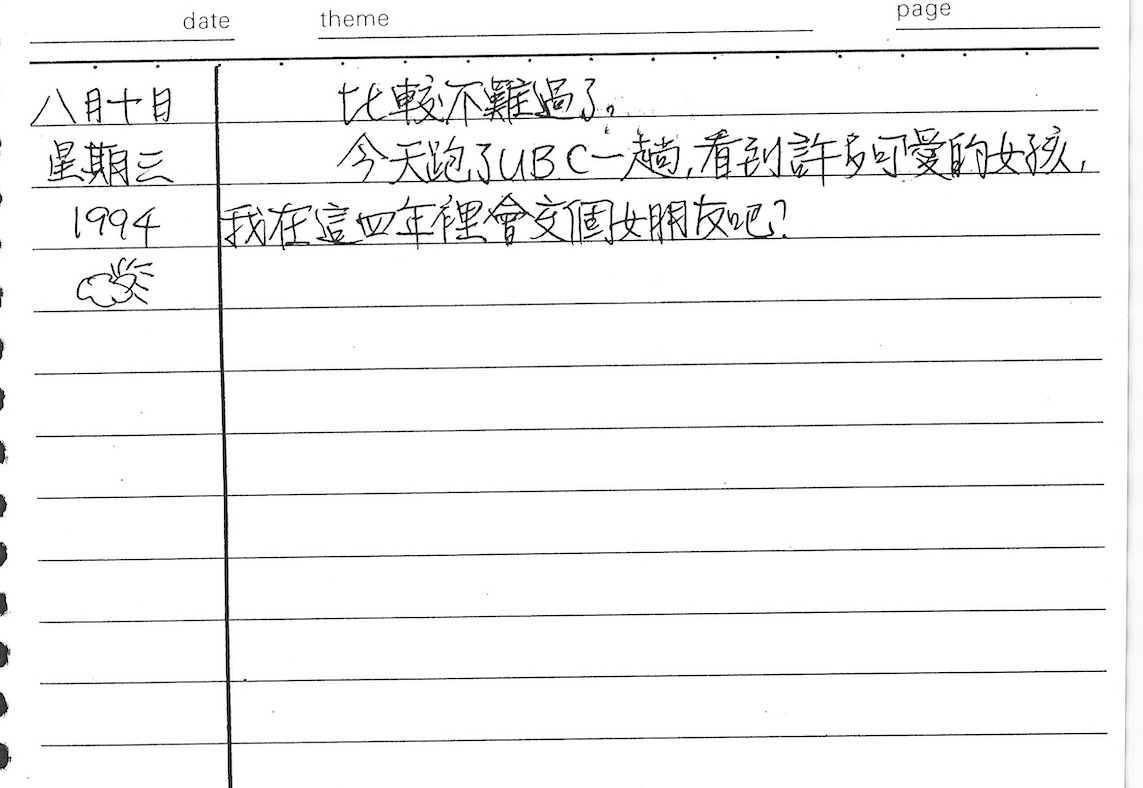 date theme page
八月十日
星期三
1994
比較不難過了。
今天跑了UBC一趟,看到許多可愛的女孩,
我在這四年裡會交個女朋友吧?